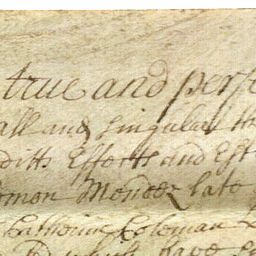 true and perf
all and singular th
ditts Effects and Est
mon Mendez late
Catherin Coleman